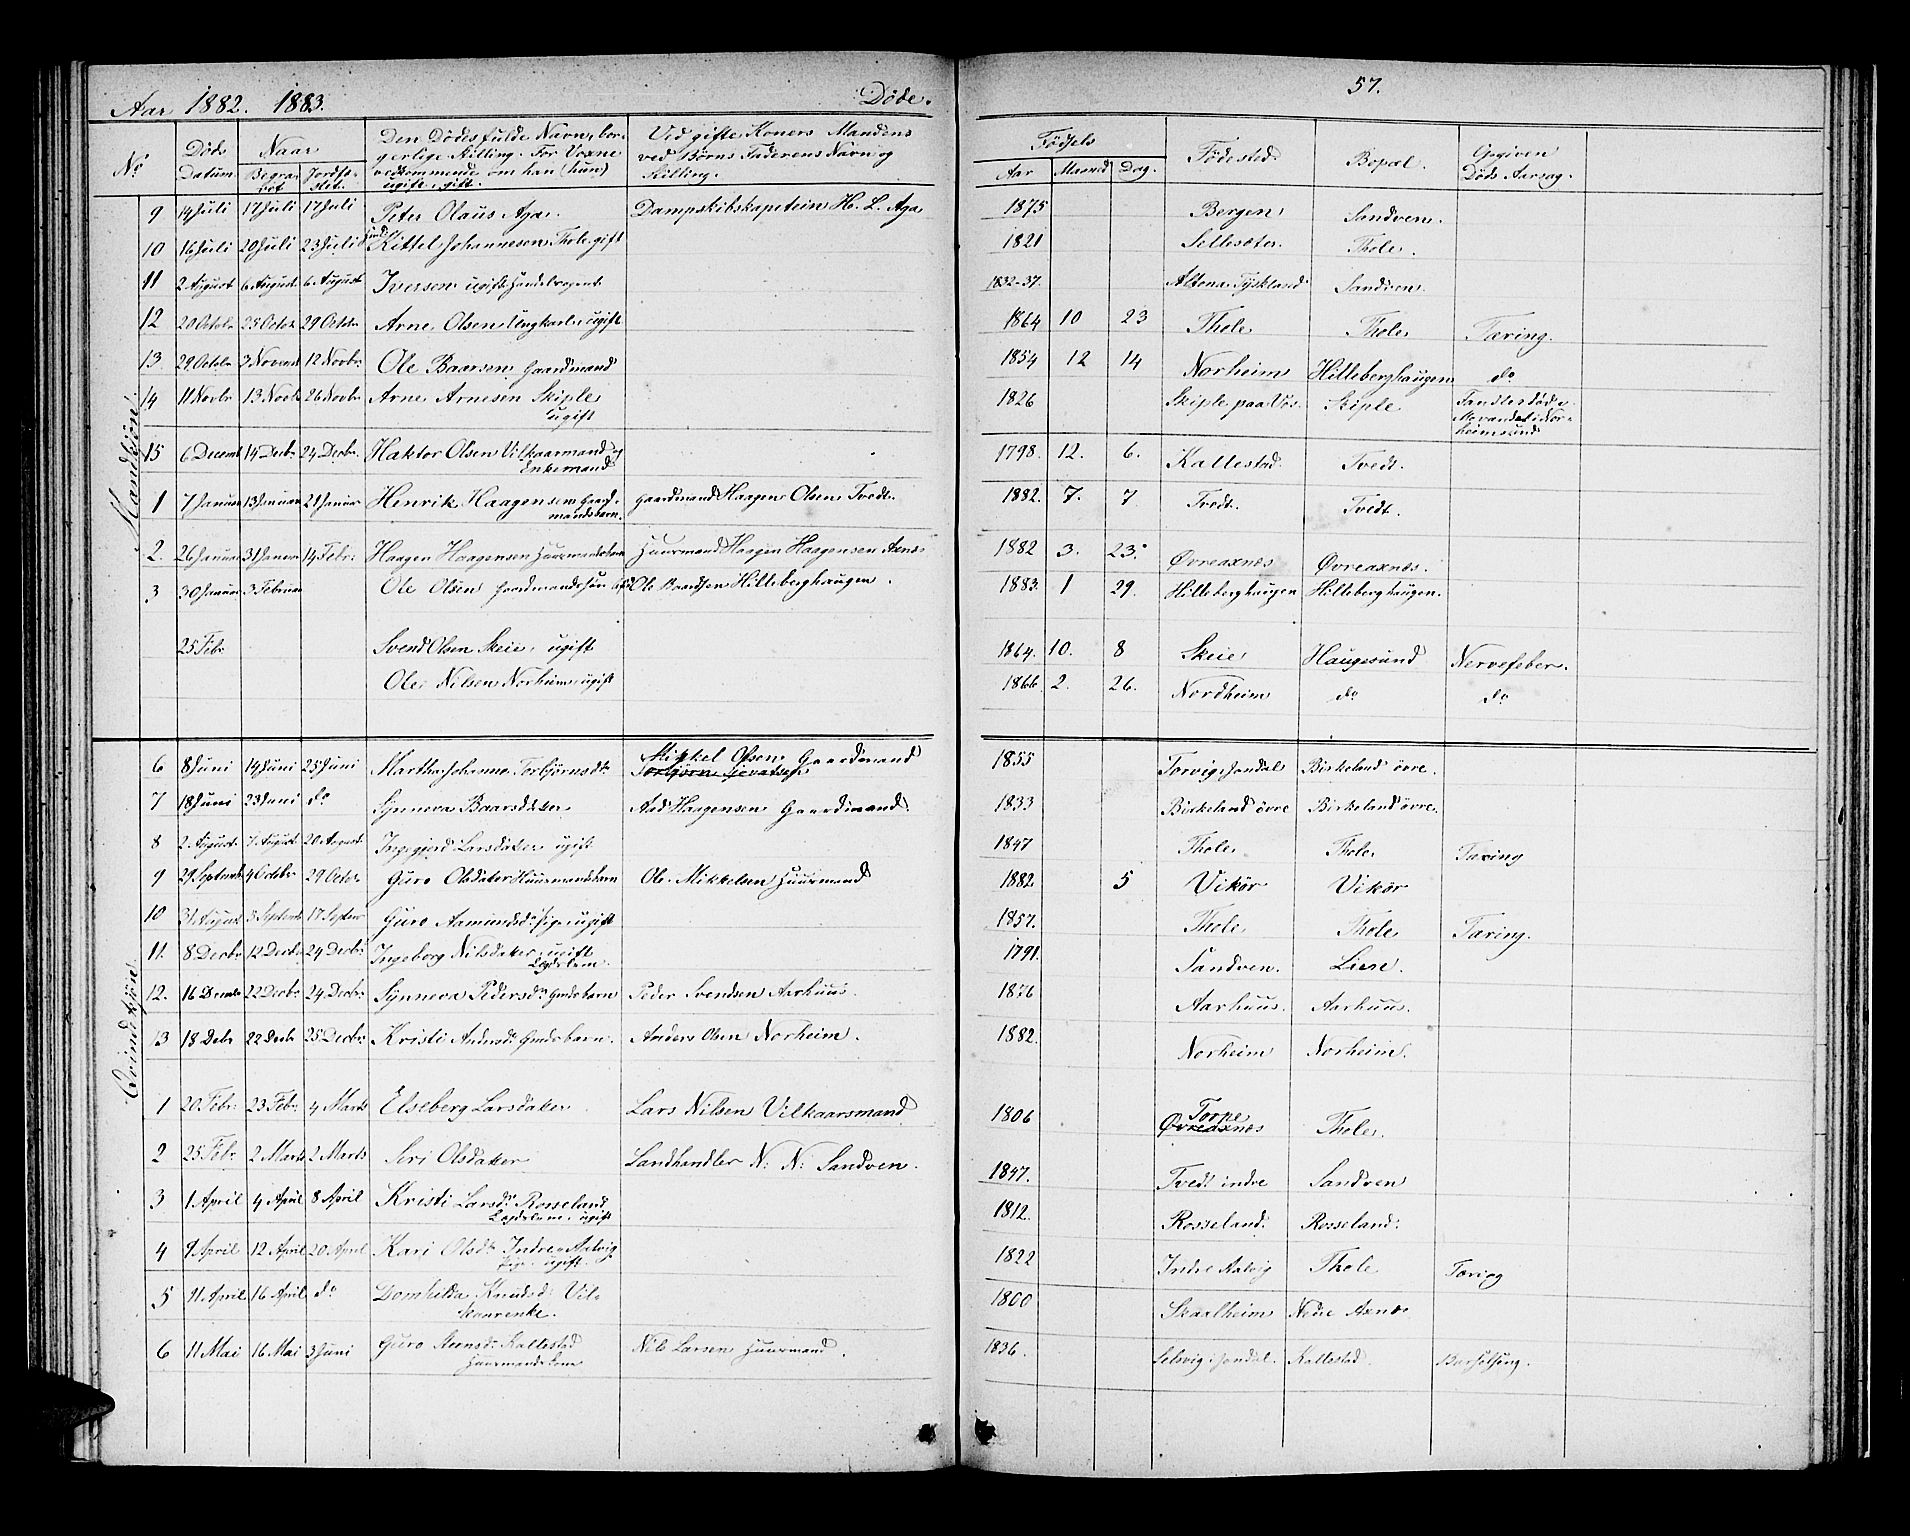 57.
Aar 1882. 1883. Døde.
No Døds Datum. Naar Begravet Jordfæstet. Den Dødes fulde Navn, borgerlige Stilling. For Voxne vedkommende om han (hun) ugift, gift. Ved gifte Koners Mandens ved Børns Faderens Navn og Stilling. Fødsels Aar Maaned Dag. Fødested. Bopæl. Opgiven Døds Aarsag.
Mandkjön.
9 14 Juli 17 Juli 17 Juli Peter Olaus Aga. Dampskibskaptein H. L. Aga 1875 Bergen Sandven.
10 16 Juli 20 Juli 23 Juli Kittel Johannesen Thole gift 1821 Sellesæter. Thole.
11 2 August 6 August 6 August Iversen ugift Handelsagent 1832-37. Altona Tyskland Sandven.
12 20 Octobr 25 Octob 29 Octobr Arne Olsen Ungkarl, ugift 1864 10 23 Thole Thole Tæring.
13 29 Octobr 3 Novemb 12 Novbr. Ole Baarsen Gaardmand 1854 12 14 Norheim Hilleberghaugen do
14 11 Novbr 13 Novb 26 Novbr Arne Arnesen Skiple
ugift 1826 Skiple paa Vos. Skiple
heimsund
15 6 Decemb 14 Decbr 24 Decbr. Haktor Olsen Vilkaarmand og
Enkemand 1798. 12. 6. Kallestad. Tvedt.
1 7 Januar 13 Januar 21 Januar Henrik Haagensen Gaard-
mandsbarn. Gaardmand Haagen Olsen Tvedt. 1882. 7. 7 Tvedt. Tvedt.
2. 26 Januar 31 Januar 14 Febr. Haagen Haagensen Huusmandsbarn Huusmand Haagen Haagensen Axnes 1882 3. 23. Øvreaxnes Øvreaxnes.
3 30 Januar 3 Februar Ole Olsen Gaardmands Ole Baardsen Hilleberghaugen. 1883. 1 29. Hilleberghaugen Hilleberghaugen.
25 Febr. Svend Olsen Skeie, ugift 1864. 10. 8 Skeie Haugesund Nervefeber.
Ole Nilsen Norheim, ugift 1866 2. 26. Nordheim do do
Qvindekjön.
6 8 Juni 14 Juni 25 Juni Martha Johanna Torbjörnsdtr. Mikkel Olsen Gaardmand
Torbjörn 1855 Torvig, Jondal Birkeland övre.
7 18 Juni 23 Juni do Synneva Baarsdatter Aad Haagensen Gaardmand. 1833 Birkeland övre Birkeland övre.
8 2 August. 7 August. 20 August. Ingegjerd Larsdatter ugift 1847 Thole. Thole Tæring
9 29 Septembr 4 Octobr 29 Octobr Guro Olsdatter Huusmandsbarn Ole Mikkelsen Huusmand 1882. 5 Vikör Vikör
10 31 August 5 Septemb 17 Septemr Guro Aamundsdr. Pige, ugift 1857. Thole Thole Tæring.
11. 8 Decbr 12 Decbr 24 Decbr. Ingeborg Nilsdatter, ugift
Lægdslem. 1791. Sandven. Liere.
12. 16 Decembr 22 Decbr. 24 Decbr. Synneva Pedersdr. Gmdsbarn Peder Svendsen Aarhuus. 1876 Aarhuus. Aarhuus.
13 18 Decbr 22 Decbr 25 Decbr. Kristi Andersdr Gmdsbarn. Anders Olsen Norheim. 1882. Norheim Norheim.
1 20 Febr. 23 Febr. 4 Marts Elseberg Larsdatter Lars Nilsen Vilkaarsmand 1806 Torpe
Øvreaxnes Thole.
2 25 Febr. 2 Marts 2 Marts Siri Olsdatter Landhandler N: N: Sandven. 1847. Tvedt indre Sandven
3 1 April 4 April 8 April Kristi Larsdr. Rosseland
Lægdslem, ugift 1812. Rosseland. Rosseland.
4 9 April 12 April 20 April Kari Olsdtr. Indre Aalvig
Pige, ugift. 1822 Indre Aalvig Thole Tæring
5 11 April 16 April do Domhilda Knudsd: Vil-
kaarenke. 1800 Skaalheim Nedre Axnes
6 11 Mai 16 Mai 3 Juni Guro Steensd: Kallestad
Huusmandskone Nils Larsen Huusmand. 1836. Selsvig, Jondal. Kallestad. Barselseng.